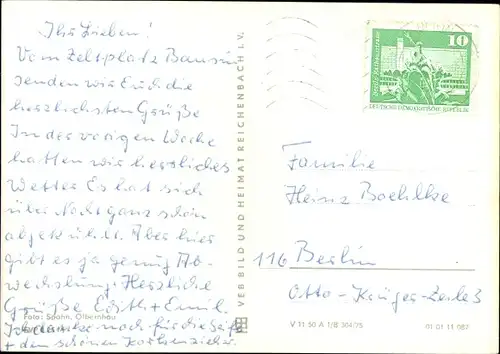 Ihr Lieben!
Vom Zeltplatz Bansin
senden wir Euch die
herzlichsten Grüße
In der vorigen Woche
hatten wir herrliches
Wetter Es hat sich
über Nacht ganz schön
abgekühlt. Aber hier
gibt es ja genug Ab-
wechslung. Herzliche
Grüße Edith + Emil.
noch für die
+ den schönen
Foto: Spahn, Olbernhau
VEB BILD UND HEIMAT REICHENBACH I. V.
10
DEUTSCHE DEMOKRATISCHE REPUBLIK
Familie
Heinz Boehlke
116 Berlin
Otto-Krüger-Zeile 3
V 11 50 A 1/B 304/75
01 01 11 087